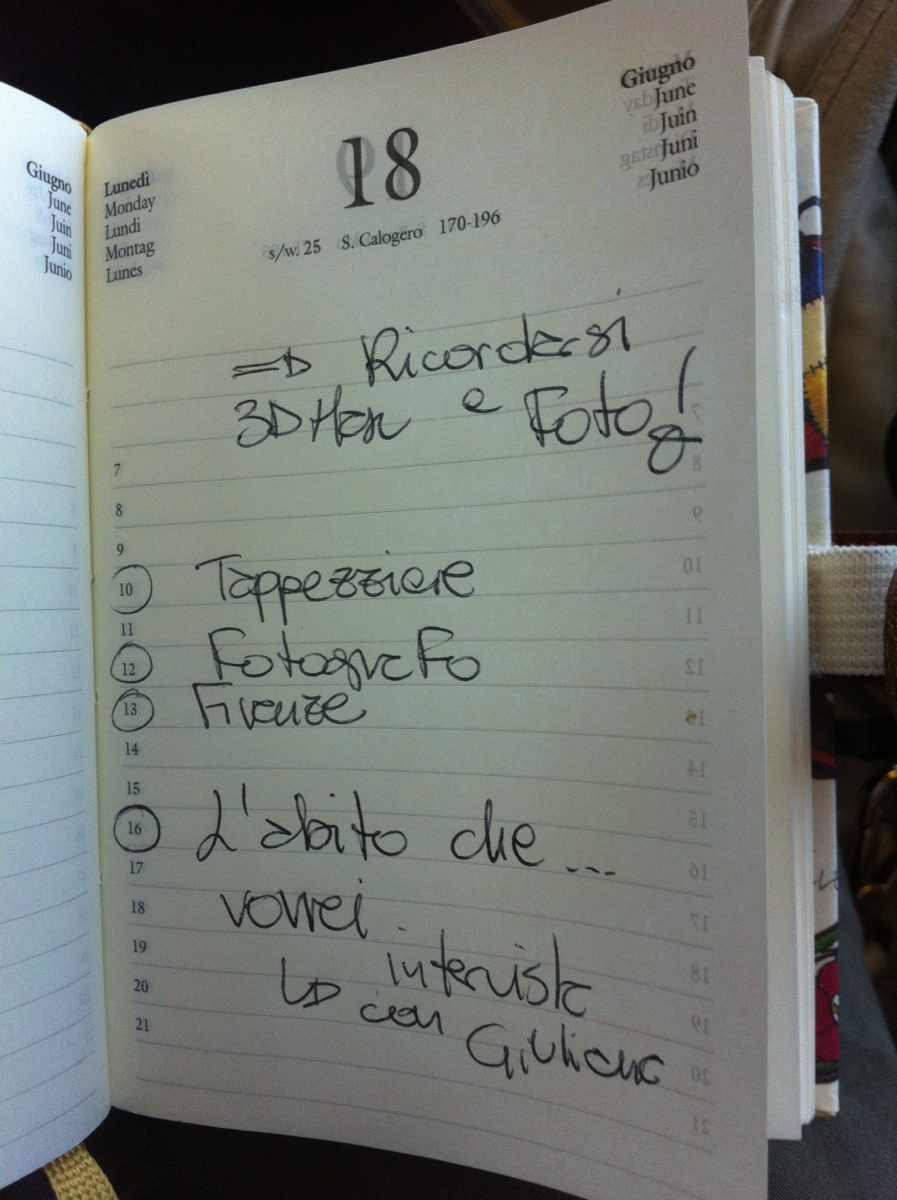 Giugno
June
Juin
Juni
Junio
Lunedì
Monday
Lundi
Montag
Lunes
18
s/w. 25 S. Calogero 170-196
Giugno
June
Juin
Juni
Junio
=> Ricordarsi
3D Man e Foto!
7
8
9
10 Tappezziere
11
12 Fotografo
13 Firenze
14
15
16 L'abito che ...
17
18 vorrei
19
20 intervista
con
21
Giuliana